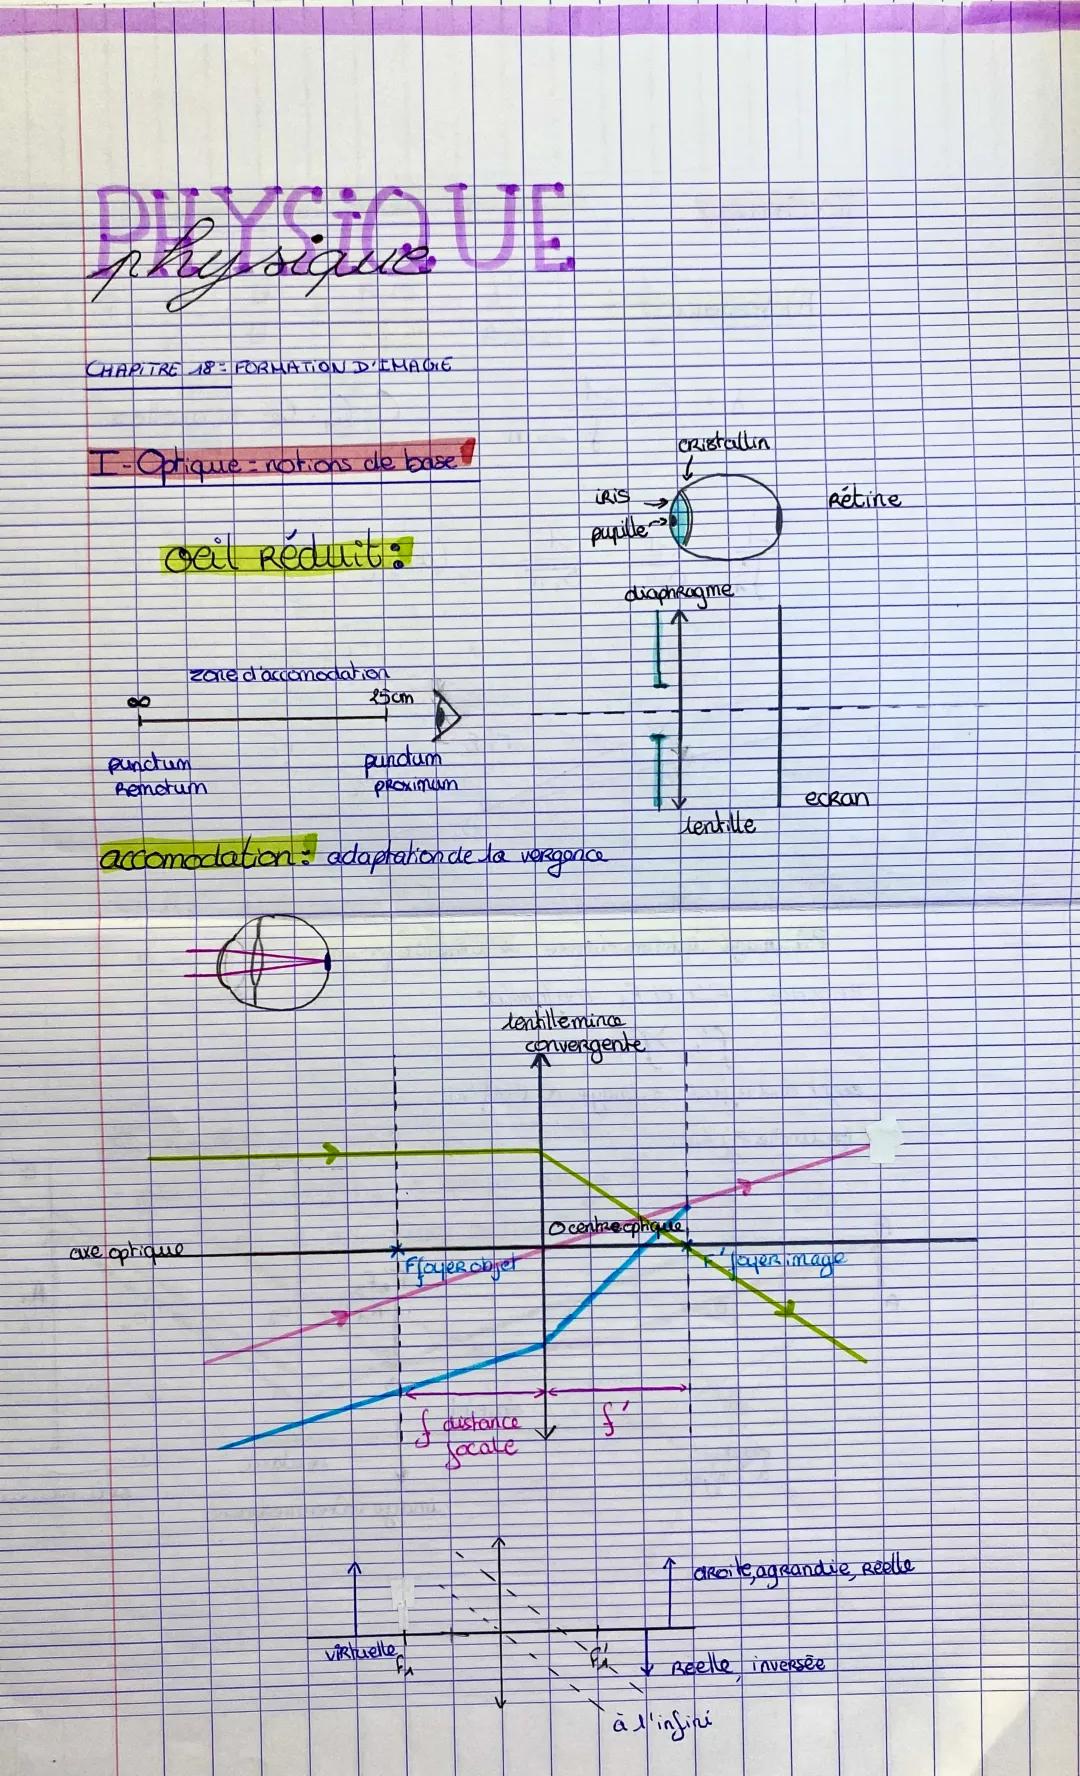 PHYSIQUE
physique
CHAPITRE 18 = FORMATION D'IMAGE
I - Optique = notions de base
cristallin
iris
pupille
Rétine
oeil Réduit :
diaphragme
zone d'accomodation
∞
25cm
punctum
Remotum
punctum
proximum
ecran
lentille
accomodation : adaptation de la vergence
lentille mince
convergente
O centre optique
axe optique
F foyer objet
F' foyer image
f distance
focale
f'
droite, agrandie, Réelle
virtuelle
F1
F'1
Réelle, inversée
à l'infini